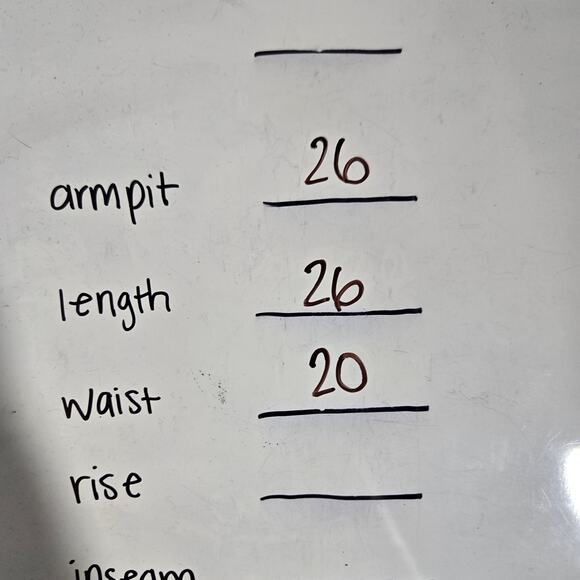 armpit 26
length 26
waist 20
rise
inseam